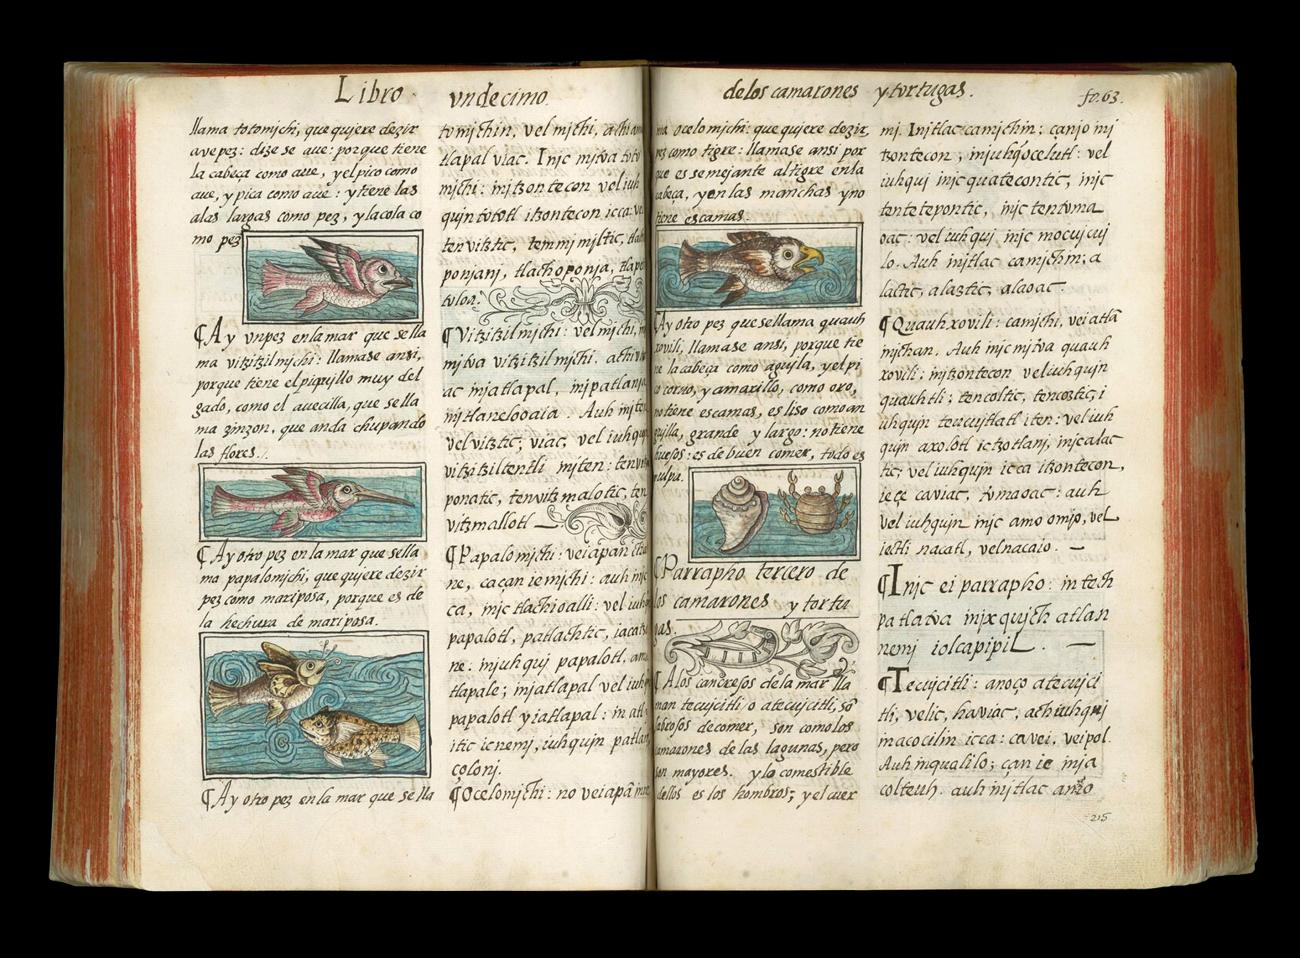 Libro
undecimo.
llama totomichi, que quiere dezir
ave pez: dize se aue: porque tiene
la cabeça como aue, y el pico como
aue, y pica como aue: y tiene las
alas largas como pez, y la cola co
mo pez
¶ Ay vn pez en la mar que se lla
ma vitzitzilmichi: llamase ansi,
porque tiene el piquillo muy del
gado, como el auecilla, que se lla
ma zinzon, que anda chupando
las flores.
¶ Ay otro pez en la mar que se lla
ma papalomichi, que quiere dezir
pez como mariposa, porque es de
la hechura de mariposa.
¶ Ay otro pez en la mar que se lla
tomichin, vel michi,
tlapal viac. Injc mjtoa toto
michi: mjtzontecon vel iuh
quin tototl itzontecon icca:
tenvitztic, temmimjltic,
ponjanj, tlachoponja,
tolon:
¶ Vitzitzilmichi: vel michi,
mjtoa vitzitzilmichi.
ac mjatlapal, mjpatlanja
mjtlaneloaia. Auh
vel vitztic; viac, vel iuhqui
vitzitziltentli mjten:
ponatic, tenvitzmalotic, ten
vitzmallotl
¶ Papalomichi: vei apan
ne, caçan ie michi: auh injc
ca, mjc tlachioalli: vel iuh
papalotl, patlachtic,
ne. mjuhquj papalotl,
tlapale; mjatlapal vel iuh
papalotl yiatlapal:
itic icnemj, iuhqujn patlan
colonj.
¶ Ocelomichi: no vei apā
de los camarones y tortugas.
fo. 63.
ma ocelomichi: que quiere dezir,
pez como tigre: llamase ansi por
que es semejante al tigre en la
cabeça, y en las manchas y no
tiene escamas.
Ay otro pez que se llama quauh
xovili, llamase ansi, porque tie
ne la cabeça como aguila, y el pi
co corvo, y amarillo, como oro,
no tiene escamas, es liso como an
guilla, grande y largo: no tiene
huesos: es de buen comer, todo es
pulpa.
¶ Parrapho tercero de
los camarones y tortu
gas.
¶ A los cangrejos de la mar lla
man tecujcitli o atecujcitli, sō
sabrosos de comer, son como los
camarones de las lagunas, pero
son mayores. y lo comestible
dellos es los hombros; y el cuer
mj. Injtlac camjchin: canjo mj
tzontecon, injuhq ocelutl: vel
iuhquj injc quatecontic, injc
tentetepontic, injc tentoma
oac: vel iuhquj, injc mocujcuj
lo. Auh injtlac camjchin; a
lactic, alaztic, alaoac.
¶ Quauhxovili: camjchi, vei atlā
mjchan. Auh injc mjtoa quauh
xovili: injtzontecon vel iuhqujn
quauhtli; tencoltic, tencoztic; i
uhqujn teucujtlatl iten: vel iuh
qujn axolotl ictzotlanj, injc alac
tic; vel iuhqujn icca itzontecon,
iece caviac, tomaoac: auh
vel iuhqujn injc amo omjo, vel
iestli nacatl, vel nacaio.
¶ Injc ei parrapho: intech
pa tlatoa injxqujch atlan
nemj iolcapipil.
¶ Tecujcitli: anoço atecujci
tli, velic, haviac, achiuhquj
inacocilin icca: ca vei, veipol.
Auh inqualilo; çan ie mja
coltcuh. auh injtlac amo
215